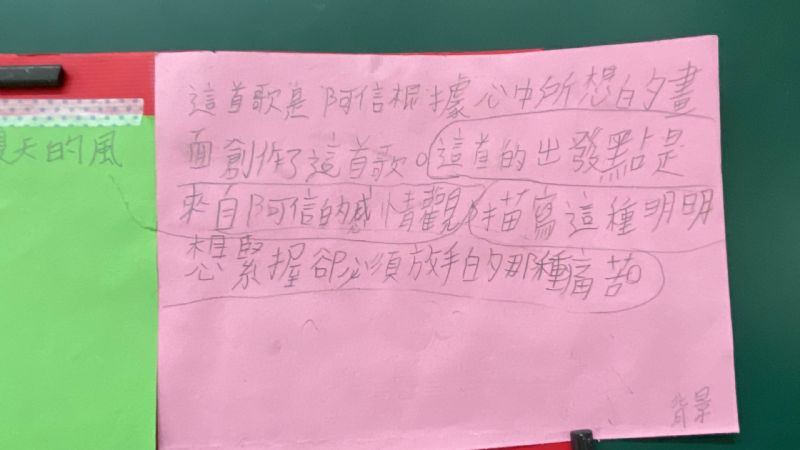 夏天的風
這首歌是阿信根據心中所想的畫
面創作了這首歌。這首的出發點是
來自阿信的感情觀,描寫這種明明
想緊握卻必須放手的那種痛苦。
背景